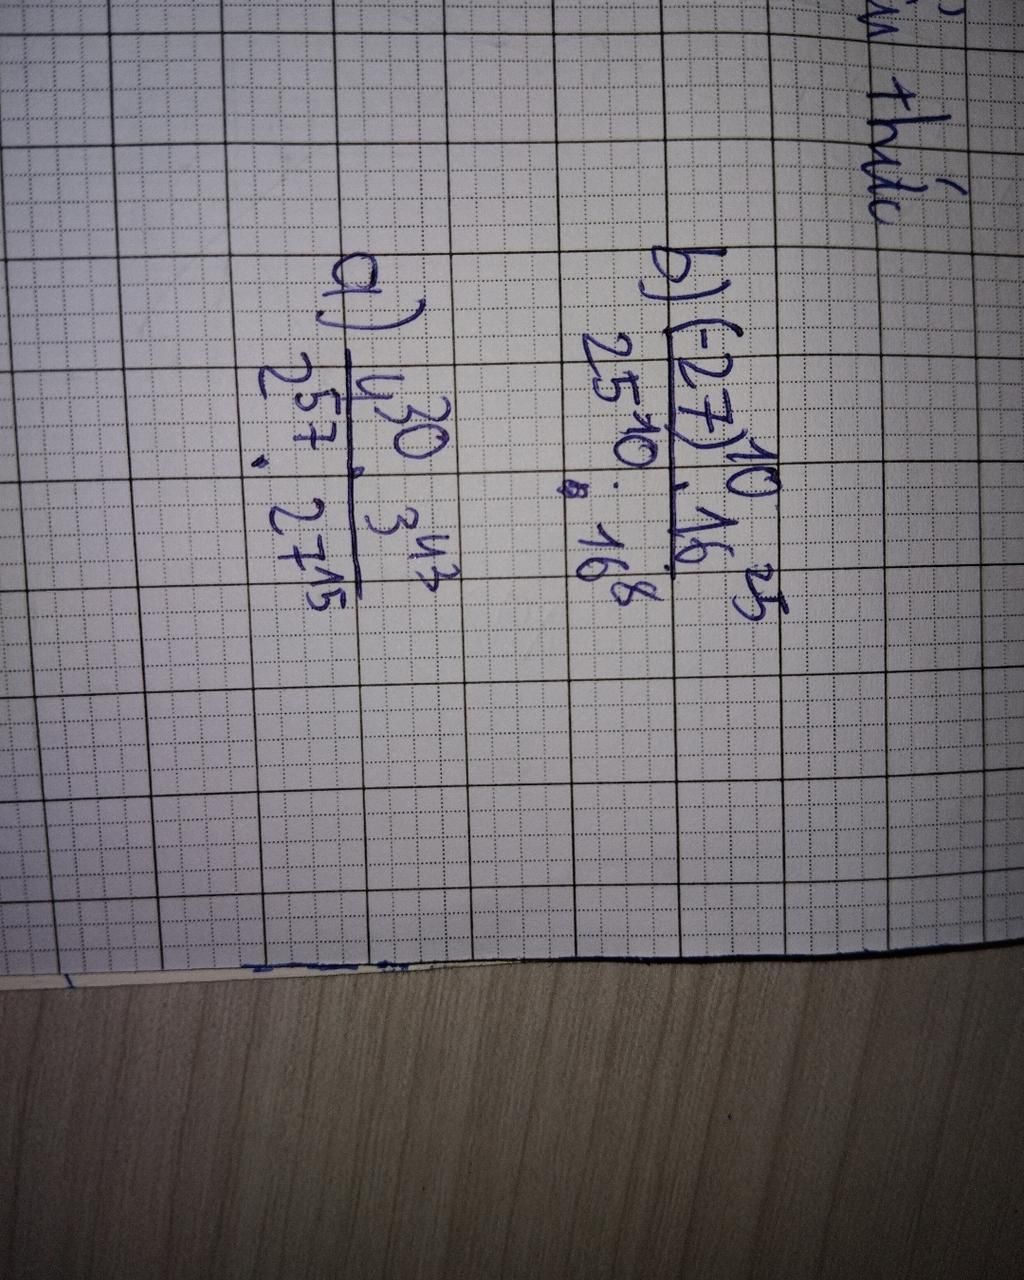 thức
b) (-27)¹⁰ . 16²⁵
25¹⁰ . 16⁸
a) 4³⁰ . 3⁴³
2⁵⁷ . 27¹⁵